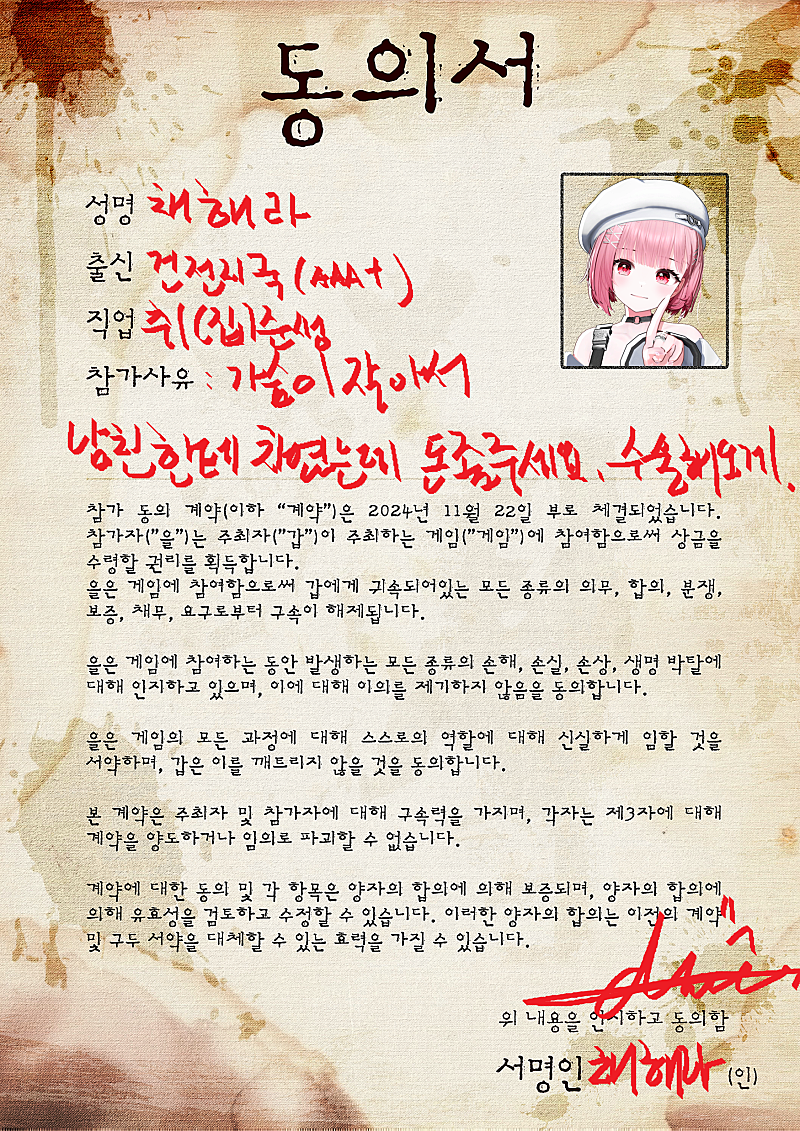 동의서
성명 채해라
출신 건전지국(AAA+)
직업 취(집)준생
참가사유 : 가슴이 작아서
남친한테 차였는데 돈좀주세요. 수술해오게.
참가 동의 계약(이하 “계약”)은 2024년 11월 22일 부로 체결되었습니다.
참가자(”을”)는 주최자(”갑”)이 주최하는 게임(”게임”)에 참여함으로써 상금을
수령할 권리를 획득합니다.
을은 게임에 참여함으로써 갑에게 귀속되어있는 모든 종류의 의무, 합의, 분쟁,
보증, 채무, 요구로부터 구속이 해제됩니다.
을은 게임에 참여하는 동안 발생하는 모든 종류의 손해, 손실, 손상, 생명 박탈에
대해 인지하고 있으며, 이에 대해 이의를 제기하지 않음을 동의합니다.
을은 게임의 모든 과정에 대해 스스로의 역할에 대해 신실하게 임할 것을
서약하며, 갑은 이를 깨트리지 않을 것을 동의합니다.
본 계약은 주최자 및 참가자에 대해 구속력을 가지며, 각자는 제3자에 대해
계약을 양도하거나 임의로 파괴할 수 없습니다.
계약에 대한 동의 및 각 항목은 양자의 합의에 의해 보증되며, 양자의 합의에
의해 유효성을 검토하고 수정할 수 있습니다. 이러한 양자의 합의는 이전의 계약
및 구두 서약을 대체할 수 있는 효력을 가질 수 있습니다.
위 내용을 인지하고 동의함
서명인 채해라 (인)